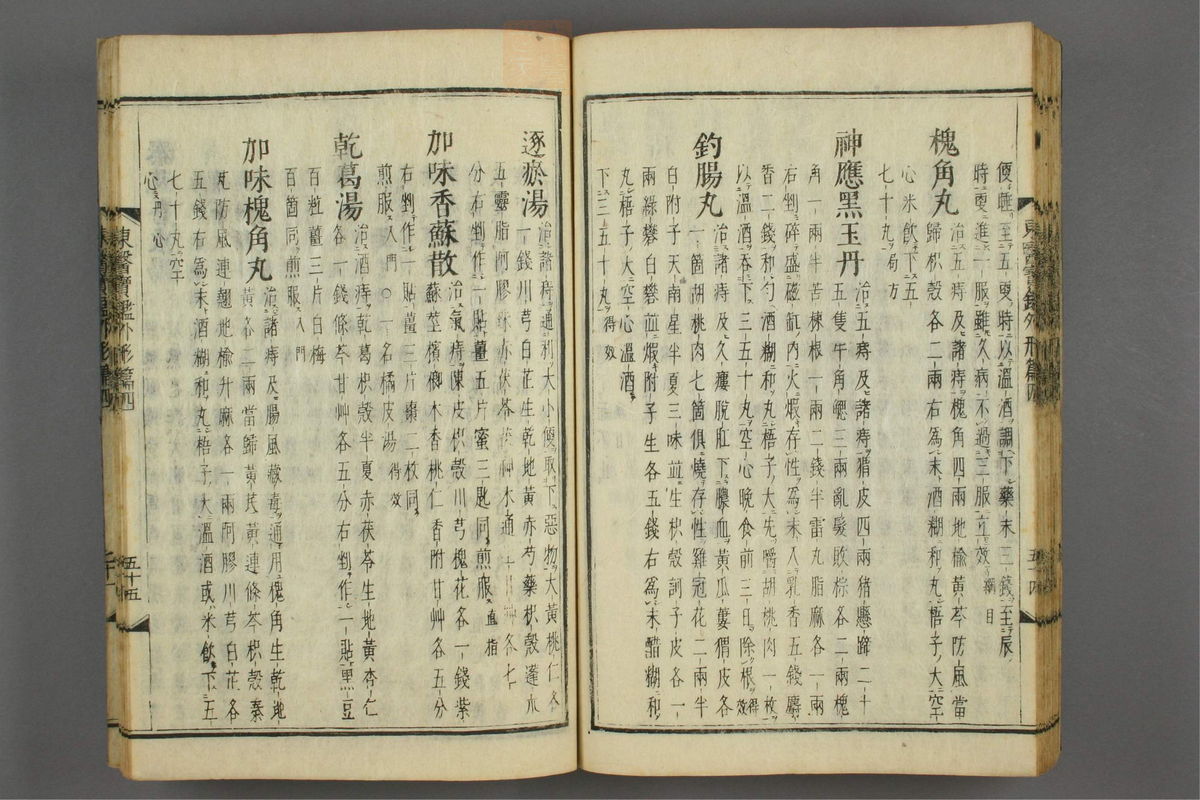 東醫寶鑑外形篇四
便睡至五更時以溫酒調下藥末三錢至辰
時更進一服雖久病不過三服立效綱目
槐角丸 治五痔及諸痔槐角四兩地楡黃芩防風當
歸枳殼各二兩右爲末酒糊和丸梧子大空
心米飮下五
七十丸局方
神應黑玉丹 治五痔及諸痔猬皮四兩猪懸蹄二十
五隻牛角䚡三兩亂髮敗棕各二兩槐
角一兩半苦楝根一兩二錢半雷丸脂麻各一兩
右剉碎盛磁缸內火煆存性爲末入乳香五錢麝
香二錢和勻酒糊和丸梧子大先嚼胡桃肉一枚
以溫酒吞下三五十丸空心晚食前三日除根得效
釣腸丸 治諸痔及久瘻脫肛下膿血黃瓜蔞猬皮各
一箇胡桃肉七箇俱燒存性雞冠花二兩半
白附子天南星半夏三味並生枳殼訶子皮各一
兩綠礬白礬並煆附子生各五錢右爲末醋糊和
丸梧子大空心溫酒
下三五十丸得效
逐瘀湯 治諸痔通利大小便取下惡物大黃桃仁各
一錢川芎白芷生乾地黃赤芍藥枳殼蓬朮
五靈脂阿膠赤茯苓茯神木通甘艸各七
分右剉作一貼薑五片蜜三匙同煎服直指
加味香蘇散 治氣痔陳皮枳殼川芎槐花各一錢紫
蘇莖檳榔木香桃仁香附甘艸各五分
右剉作一貼薑三片棗二枚同
煎服入門○一名橘皮湯得效
乾葛湯 治酒痔乾葛枳殼半夏赤茯苓生地黃杏仁
各一錢條芩甘艸各五分右剉作一貼黑豆
百粒薑三片白梅
百箇同煎服入門
加味槐角丸 治諸痔及腸風藏毒通用槐角生乾地
黃各二兩當歸黃芪黃連條芩枳殼秦
艽防風連翹地楡升麻各一兩阿膠川芎白芷各
五錢右爲末酒糊和丸梧子大溫酒或米飮下五
七十丸空
心丹心
東醫寶鑑外形篇四
五十五